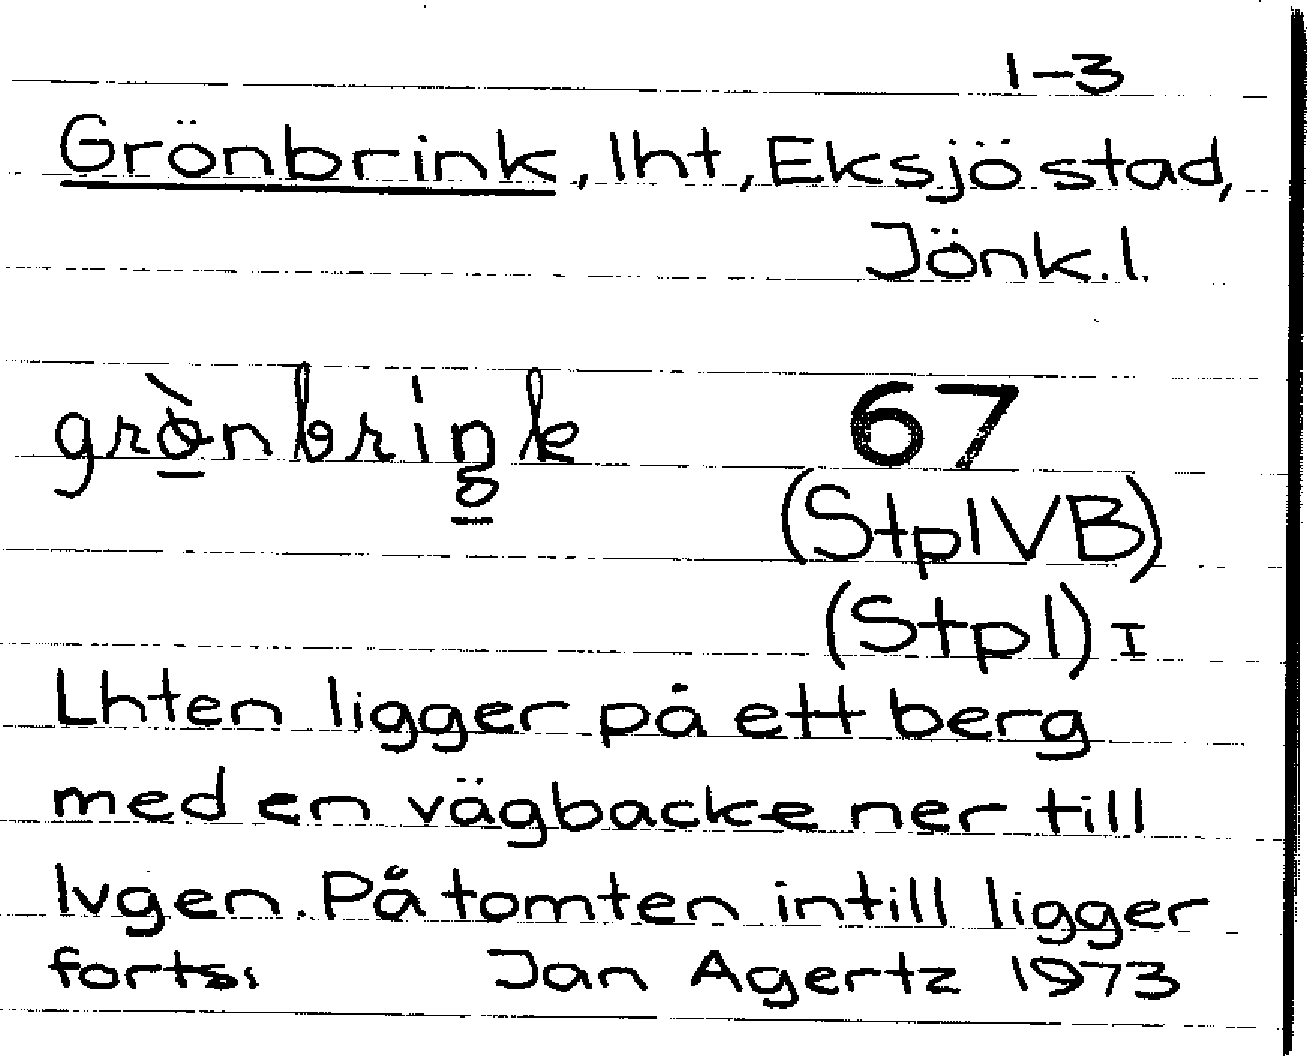 1-3
Grönbrink, lht, Eksjö stad,
Jönk.l.
67
(StplVB)
(Stpl) I
Lhten ligger på ett berg
med en vägbacke ner till
lvgen. På tomten intill ligger
forts. Jan Agertz 1973